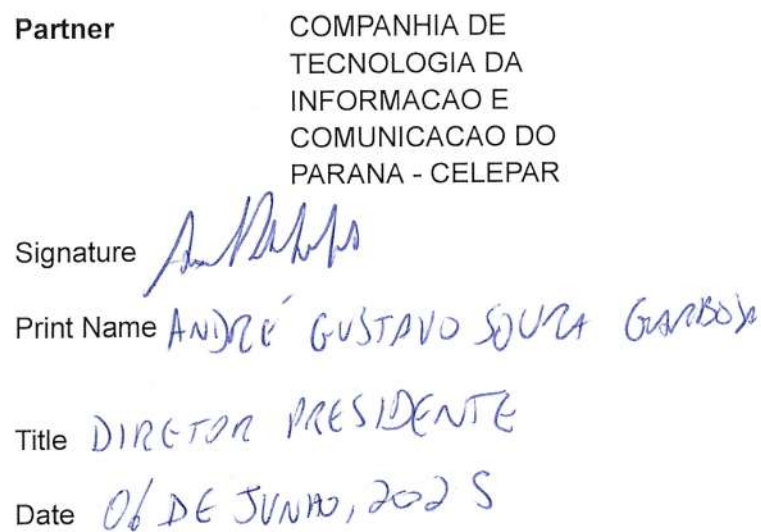 Partner COMPANHIA DE
TECNOLOGIA DA
INFORMACAO E
COMUNICACAO DO
PARANA - CELEPAR
Signature
Print Name ANDRÉ GUSTAVO SOUZA GARBOSA
Title DIRETOR PRESIDENTE
Date 06 DE JUNHO, 2025